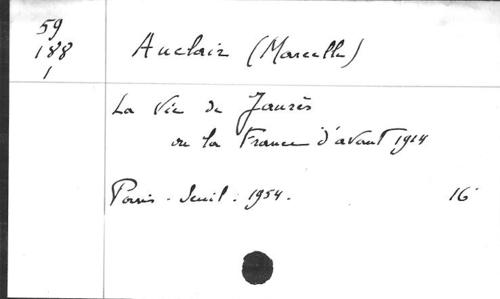 59
188
1
Auclair (Marcelle)
La Vie de Jaurès
ou la France d'avant 1914
Paris - Seuil . 1954 .
16